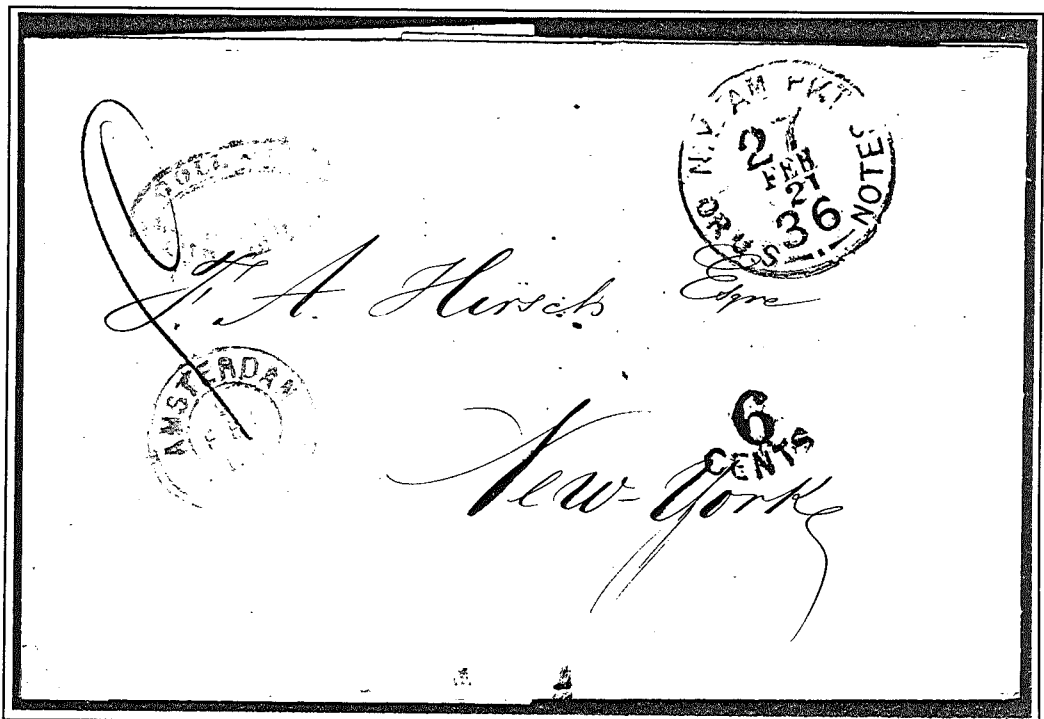 N.Y. AM PKT
27
FEB
21
36
OR U.S. NOTES
A. Hirsch Esqre
AMSTERDAM
6
CENTS
New-York